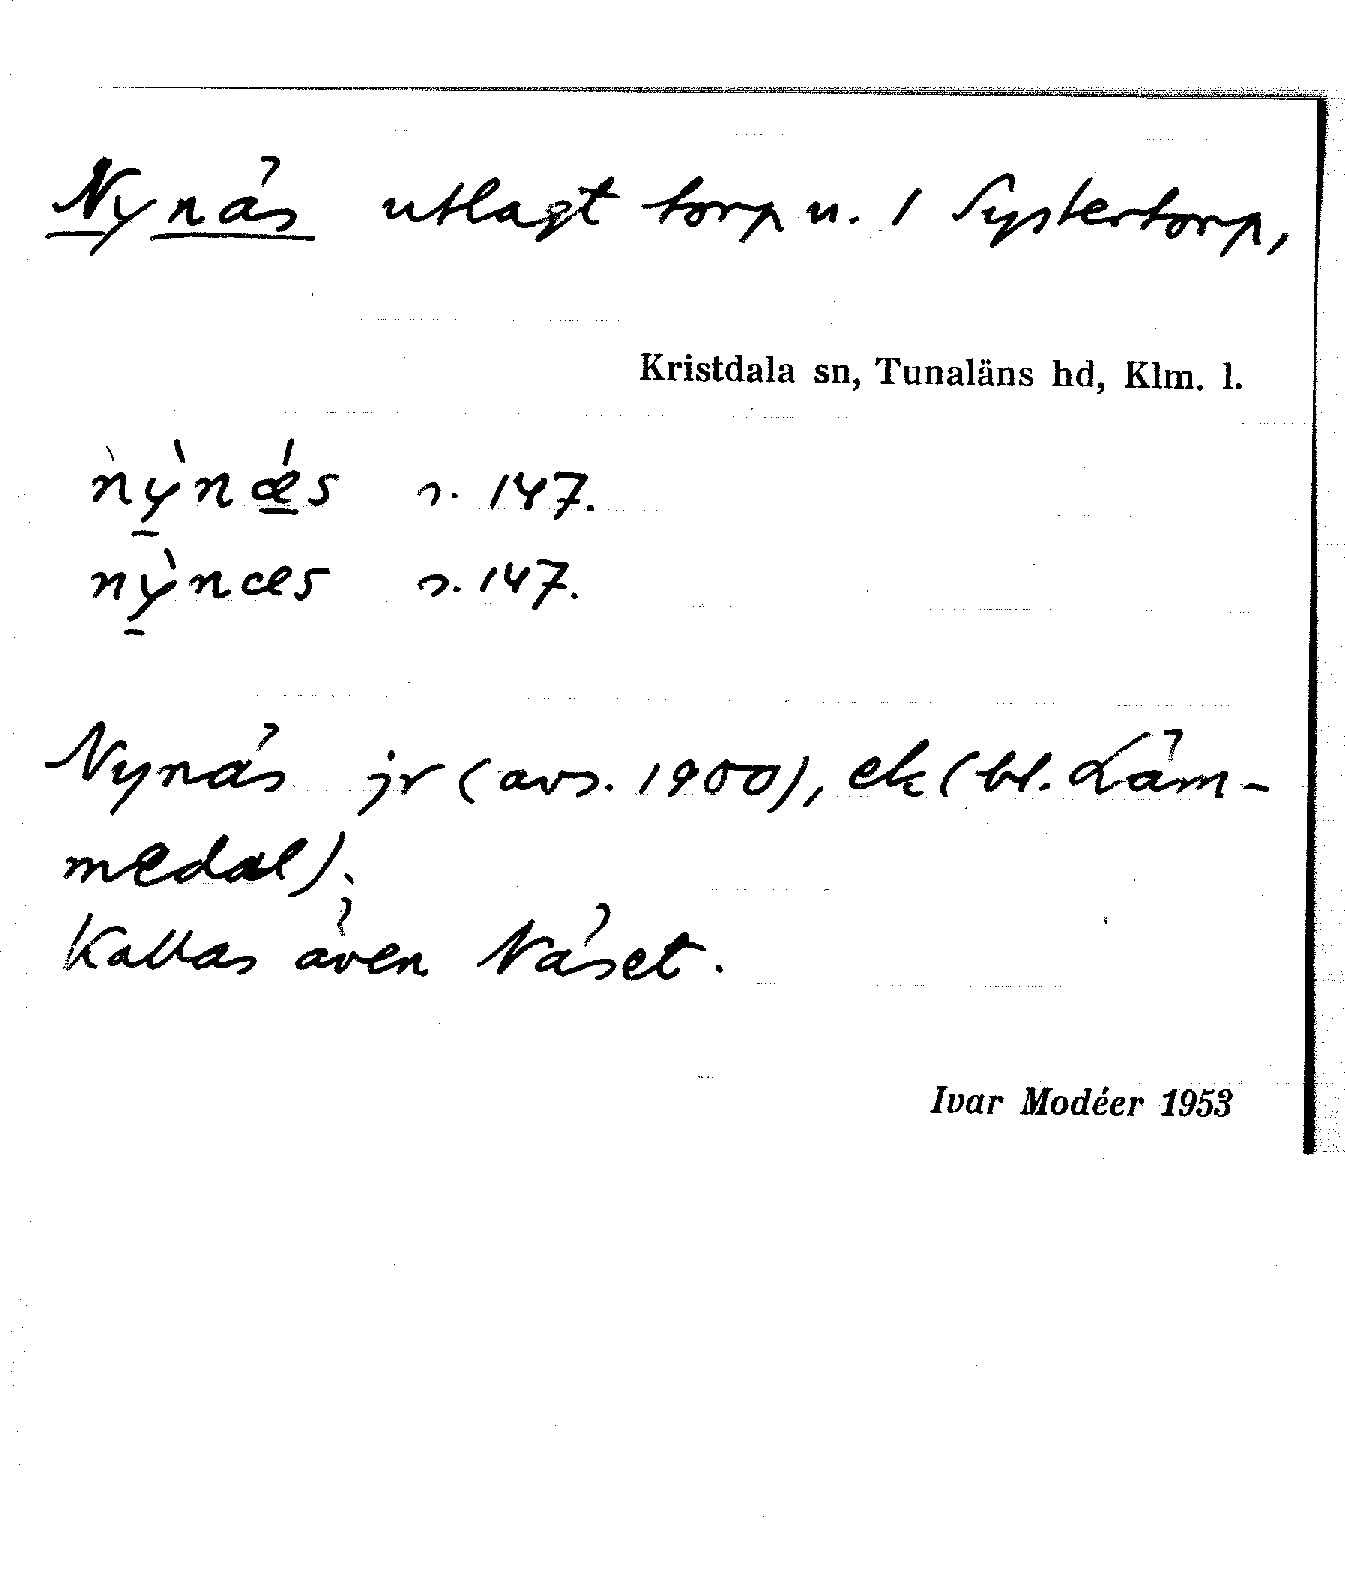 Nynäs utlagt torp u. 1 Systertorp,
Kristdala sn, Tunaläns hd, Klm. l.
nỳnǽs s. 147.
nỳnæs s. 147.
Nynäs jr (avs. 1900), ek (bl. Läm-
medal).
Kallas även Näset.
Ivar Modéer 1953